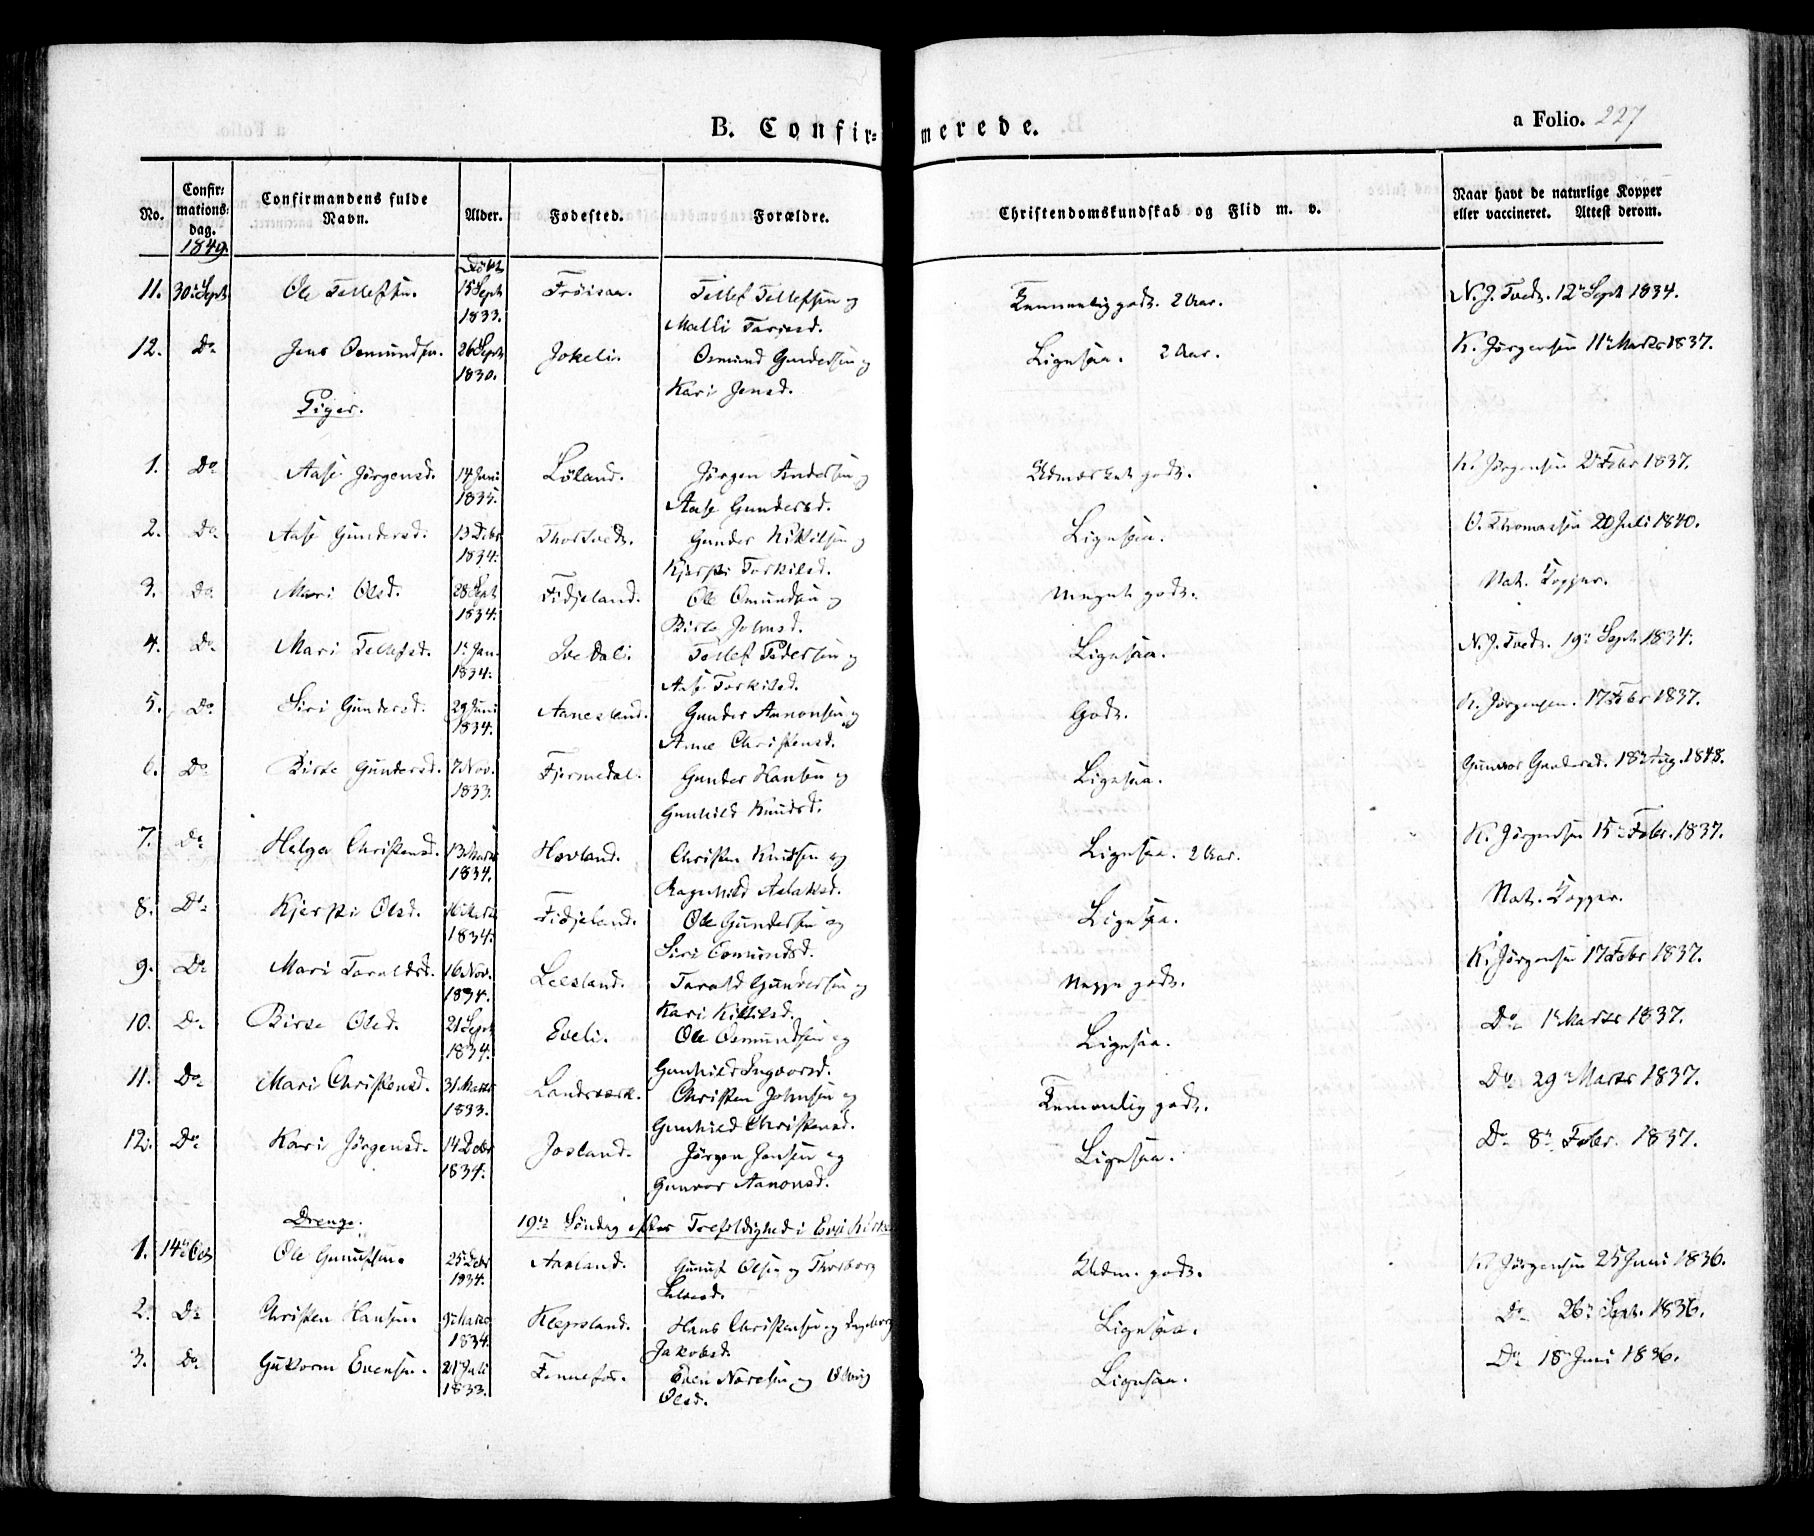 B. Confir=merede.
a Folio. 227
No. Confirmations dag. Confirmandens fulde Navn. Alder. Fødested. Forældre. Christendomskundskab og Flid m. v. Naar havt de naturlige Kopper eller vaccineret. Attest derom.
1849. Døbt
11. 30te Sept Ole Tellefsen. 15 Sept 1833. Frøisaa. Tellef Tellefsen og Temmelig godt. 2 Aar. N. J. Tvedt. 12te Sept 1834.
Malli Tarjesd.
12. Do Jens Osmundsen. 26 Sept 1830. Jokeli. Osmund Gundersen og Ligesaa. 2 Aar. K. Jørgensen 11te Marts 1837.
Kari Jensd.
Piger.
1. Do Aase Jørgensd. 14 Juni 1835. Løland. Jørgen Andersen og Udmærket godt. K. Jørgensen 2 Febr 1837.
Aase Gundersd.
2. Do Aase Gundersd. 13 Debr 1834. Thortvedt. Gunder Kittilsen og Ligesaa. O. Thomassen 20 Juli 1840.
Kjersti Torkilsd.
3. Do Mari Olsd. 28 Sept 1834. Fidjeland. Ole Osmundsen og Meget godt. Nat. Kopper.
Birte Johnsd.
4. Do Mari Tellefsd. 1te Jan. 1834. Ivedal. Tellef Pedersen og Ligesaa. N. J. Tvedt. 19te Sept 1834.
Aase Torkilsd.
5. Do Siri Gundersd. 29 Juni 1834. Aanesland. Gunder Aanonsen og Godt. K. Jørgensen. 17 Febr 1837.
Anne Christensd.
6. Do Birte Gundersd. 7 Nov. 1833. Fjermedal. Gunder Hansen og Ligesaa. Gunvor Gundersd. 18te Aug. 1848.
Gunhild Knudsd.
7. Do Helga Christensd. 13 Marts 1834. Hovland. Christen Knudsen og Ligesaa. 2 Aar. K. Jørgensen 15te Febr. 1837.
Ragnhild Aslaksd.
8. Do Kjersti Olsd. 1834. Fidjeland. Ole Gundersen og Ligesaa. Nat. Kopper.
Siri Osmundsd.
9. Do Mari Taraldsd. 16 Nov. 1834. Leesland. Tarald Gundersen og Neppe godt. K. Jørgensen 17 Febr 1837.
Kari Kittilsd.
10. Do Birte Olsd. 21 Sept 1834. Eveli. Ole Osmundsen og Ligesaa. Do 1te Marts 1837.
Gunhild Ingvorsd.
11. Do Mari Christensd. 31 Marts 1833. Landsværk. Christen Johnsen og Temmelig godt. Do 29te Marts 1837.
Gunhild Christensd.
12. Do Kari Jørgensd. 14 Debr 1834. Josland. Jørgen Jensen og Ligesaa. Do 8te Febr. 1837.
Gunvor Aanonsd.
Drenge. 19de Søndag efter Trefoldighed i Evje Kirke
1. 14de Oct Ole Gunufsen. 25 Debr 1834. Aasland. Gunuf Olsen og Thorborg Udm. godt. K. Jørgensen 25 Juni 1836.
2. Do Christen Hansen. 9 Marts 1834. Klepsland. Hans Christensen og Ingeborg Ligesaa. Do 26te Sept. 1836.
Jakobsd.
3. Do Guttorm Evensen. 21 Juli 1833. Fennefos. Even Næresen og Ligesaa. Do 18te Juni 1836.
Olsd.